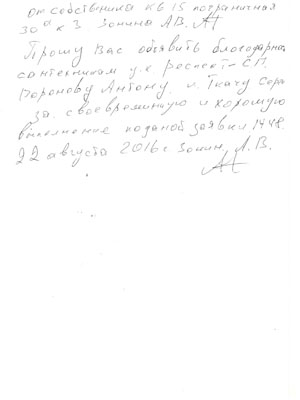 от собственика кв 15 пограничная
30ª к 3 Зонина Л.В.
Прошу Вас обявить благодарно
сантехникам у.к Респект-СП
Воронову Антону. и. Ткачу Серг
за своевременную и хорошую
выполнение поданой заявки 1448.
22 августа 2016 г Зонин. Л. В.